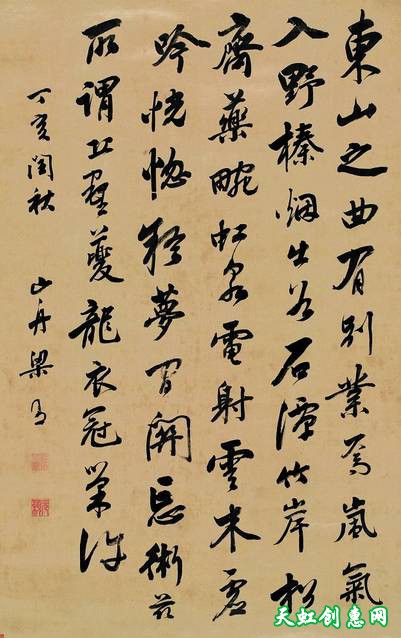 東山之曲有别業焉嵐氣
入野榛烟出谷石潭竹岸松
齋藥畹虹泉電射雲木虚
吟恍惚疑夢间關忘術兹
所謂丘壑夔龍衣冠巢許
丁亥閏秋 山舟梁
天虹创惠网